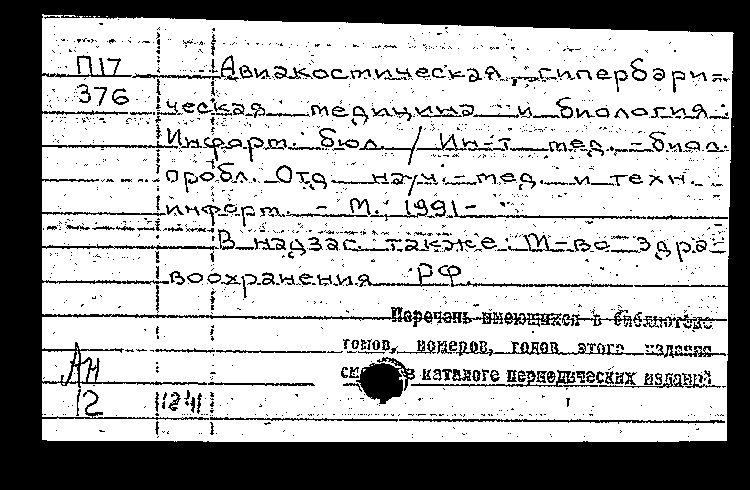 П17
376
Авиакостическая, гипербари-
ческая медицина и биология:
Информ. бюл. / Ин-т мед.-биол.
пробл. Отд. науч.-мед. и техн.
информ. - М., 1991-
В надзаг. также: М-во здра-
воохранения РФ.
Перечень имеющихся в библиотеке
томов, номеров, годов этого издания
в каталоге периодических изданий
АН
12